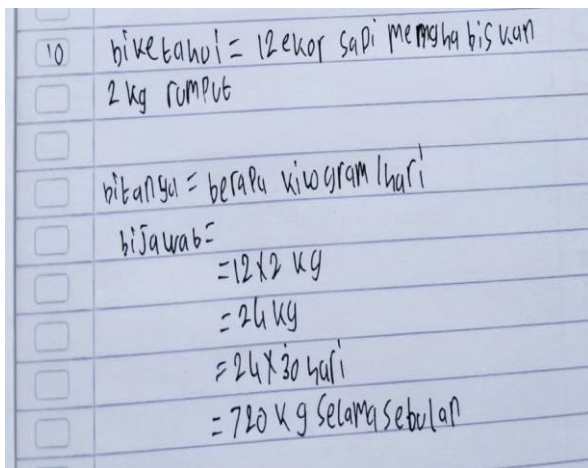 10 biketahui = 12 ekor sapi memghabiskan
2 kg rumput
bitanya = berapa kilogram / hari
bijawab =
= 12 x 2 kg
= 24 kg
= 24 x 30 hari
= 720 kg selama sebulan